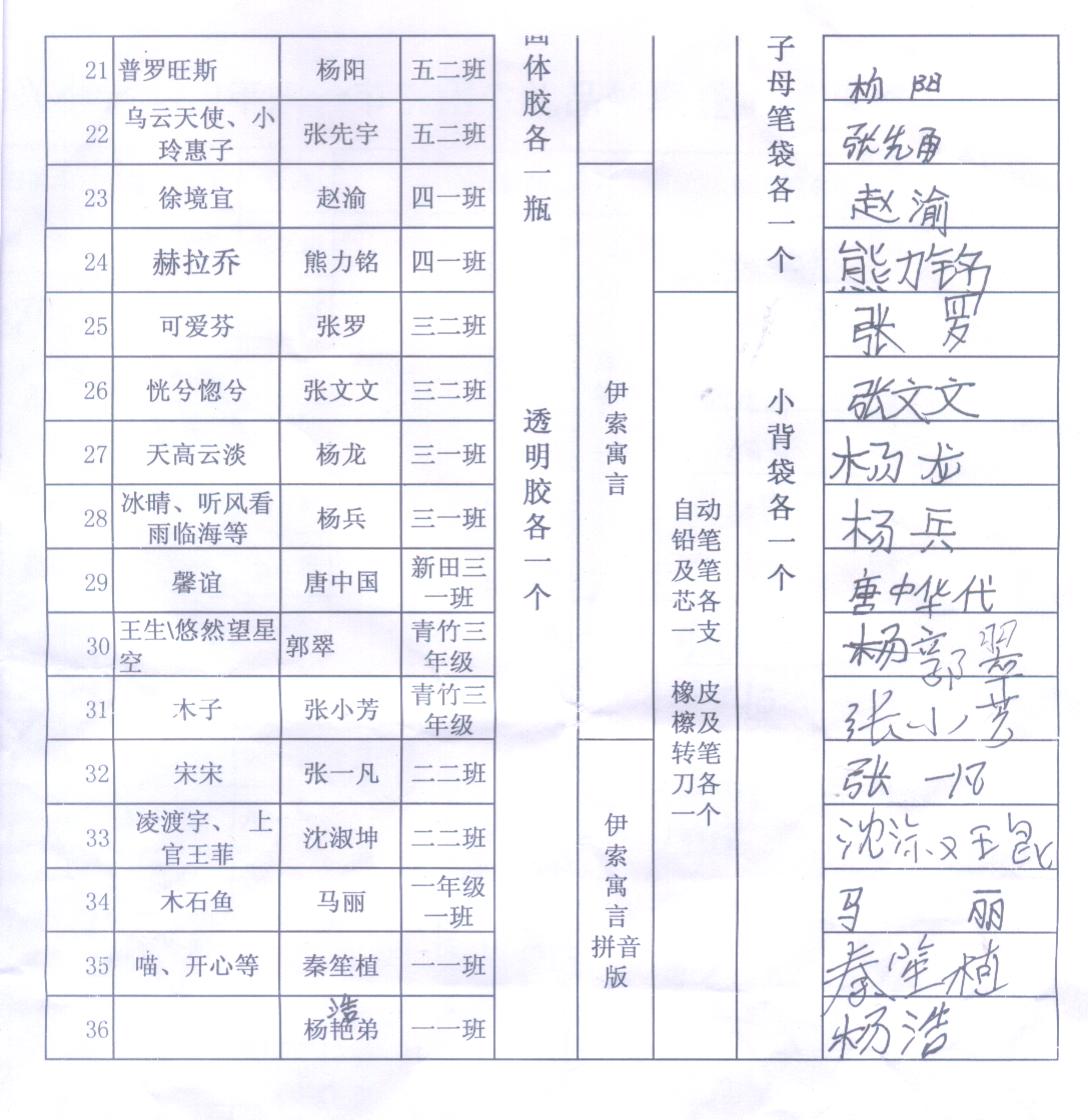 21 普罗旺斯 杨阳 五二班 杨阳
22 乌云天使、小
玲惠子 张先宇 五二班 张先勇
23 徐境宜 赵渝 四一班 赵渝
24 赫拉乔 熊力铭 四一班 熊力铭
25 可爱芬 张罗 三二班 张罗
26 恍兮惚兮 张文文 三二班 张文文
27 天高云淡 杨龙 三一班 杨龙
28 冰晴、听风看
雨临海等 杨兵 三一班 杨兵
29 馨谊 唐中国 新田三
一班 唐中华代
30 王生\悠然望星
空 郭翠 青竹三
年级 杨郭翠
31 木子 张小芳 青竹三
年级 张小芳
32 宋宋 张一凡 二二班 张一凡
33 凌渡宇、上
官王菲 沈淑坤 二二班 沈
34 木石鱼 马丽 一年级
一班 马丽
35 喵、开心等 秦笙植 一班 秦笙植
36 杨艳弟 浩 一一班 杨浩
面体胶各一瓶
透明胶各一个
伊索寓言
伊索寓言
拼音
版
自动
铅笔
及笔
芯各
一支
橡皮
檫及
转笔
刀各
一个
子母笔袋各一个
小背袋各一个